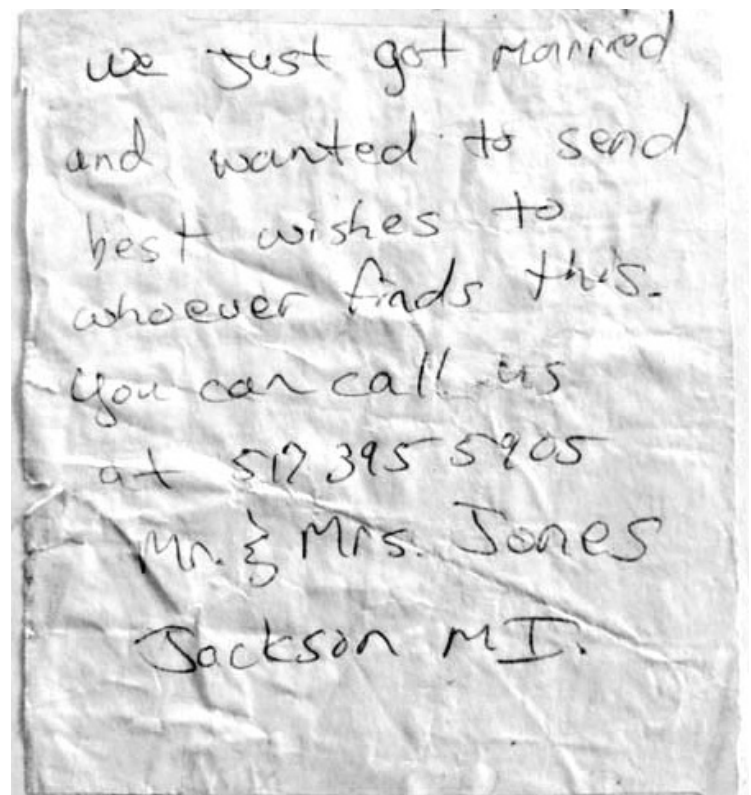 we just got married
and wanted to send
best wishes to
whoever finds this.
you can call us
at 517 395 5905
Mr. & Mrs. Jones
Jackson MI.